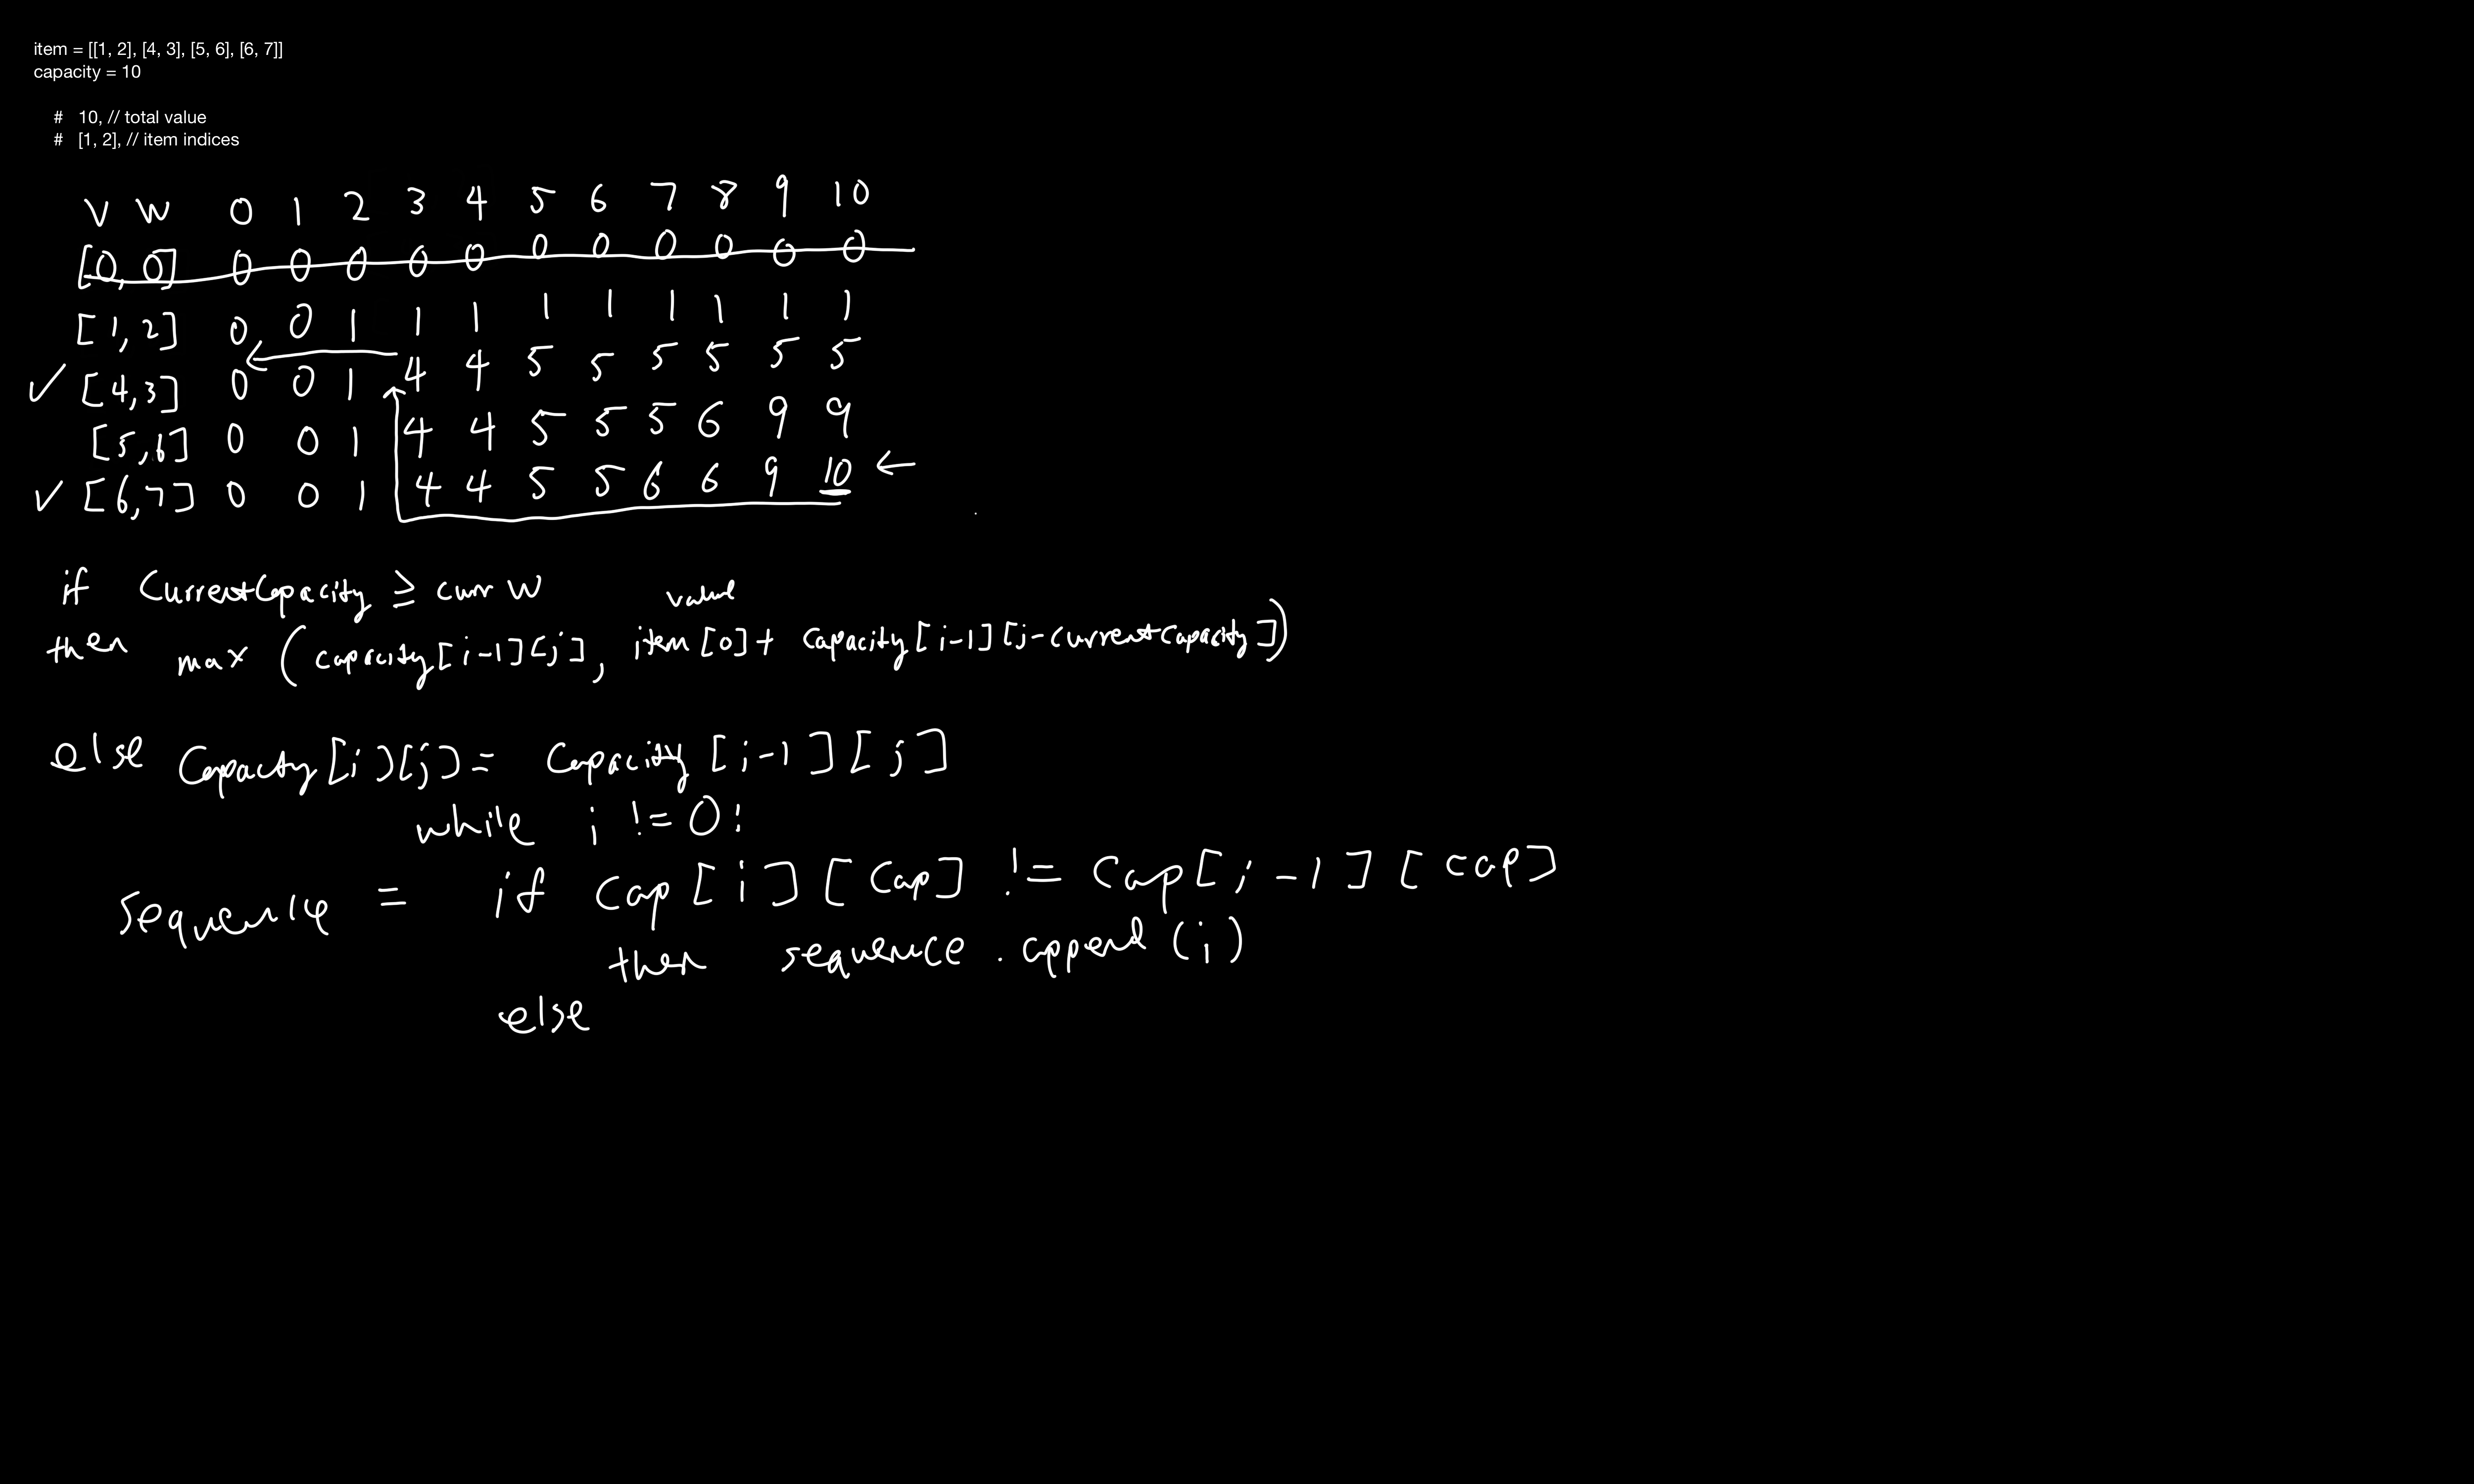 item = [[1, 2], [4, 3], [5, 6], [6, 7]]
capacity = 10
# 10, // total value
# [1, 2], // item indices
V W 0 1 2 3 4 5 6 7 8 9 10
[0,0] 0 0 0 0 0 0 0 0 0 0 0
[1,2] 0 0 1 1 1 1 1 1 1 1 1
✓ [4,3] 0 0 1 4 4 5 5 5 5 5 5
[5,6] 0 0 1 4 4 5 5 5 6 9 9
✓ [6,7] 0 0 1 4 4 5 5 6 6 9 10 ←
if CurrentCapacity ≥ curr W
value
then max (capacity[i-1][j], item[0]+ capacity[i-1][j-currentCapacity])
else Capacity[i][j]= Capacity[i-1][j]
while i !=0:
sequence = if cap[i][cap] != cap[i-1][cap]
then sequence.append(i)
else